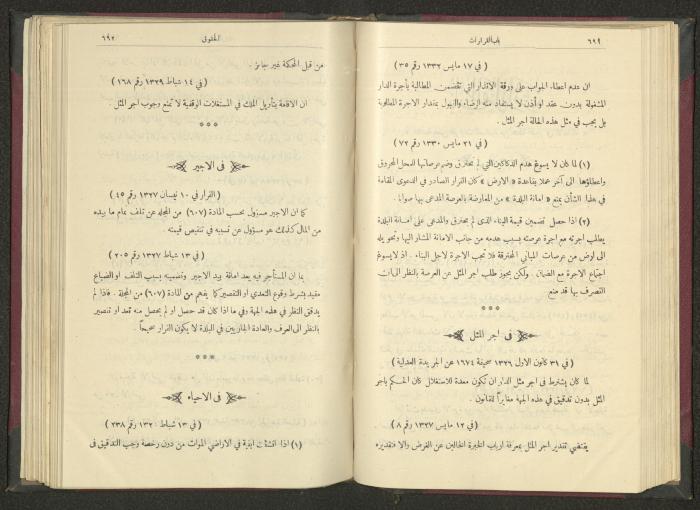 ٦٩٩ باب القرارات
( في ١٧ مايس ١٣٣٢ رقم ٣٥ )
ان عدم اعطاء الجواب على ورقة الانذار التي تتضمن المطالبة بأجرة الدار
المشغولة بدون عقد او أذن لا يستفاد منه الرضاء والقبول بمقدار الاجرة المطلوبة
بل يجب في مثل هذه الحالة اجر المثل .
( في ٢١ مايس ١٣٣٠ رقم ٧٢ )
(١) لما كان لا يسوغ هدم الدكاكين التي لم تحترق وضم عرصاتها للمحل المحروق
واعطاؤها الى آخر عملا بقاعدة « الارض » كان القرار الصادر في الدعوى المقامة
في هذا الشأن بمنع « امانة البلدة » من المعارضة بالعرصة المدعى بها صوابا .
(٢) اذا حصل تضمين قيمة البناء الذى لم يحترق والمدعى على امانة البلدة
يطلب أجرته مع اجرة عرصته بسبب هدمه من جانب الامانة المشار اليها وتحويله
الى ارض من عرصات المباني المحترقة فلا تجب الاجرة لاجل البناء . اذ لا يسوغ
اجتماع الاجرة مع الضمان . ولكن يجوز طلب اجر المثل عن العرصة بالنظر الى ان
التصرف بها قد منع
في اجر المثل
( في ٣١ كانون الاول ١٣٢٦ صحيفة ١٦٧٤ من الجريدة العدلية )
لما كان يشترط في اجر مثل الدار ان تكون معدة للاستغلال كان الحكم باجر
المثل بدون تدقيق في هذه الجهة مغايراً للقانون .
( في ١٢ مايس ١٣٢٧ رقم ٨ )
يقتضي تقدير اجر المثل بمعرفة ارباب الخبرة الخالين عن الغرض والا فتقديره
الحقوق ٦٩٢
من قبل المحكمة غير جائز .
( في ١٤ شباط ١٣٢٩ رقم ١٦٨ )
ان الاقامة بتأويل الملك في المستغلات الوقفية لا تمنع وجوب اجر المثل .
***
في الاجير
( القرار في ١٠ نيسان ١٣٢٧ رقم ٤٥ )
كما ان الاجير مسؤول بحسب المادة (٦٠٧) من المجلة عن تلف تمام ما بيده
من المال كذلك هو مسؤول عن تسببه في تنقيص قيمته .
( في ١٣ شباط ١٣٢٧ رقم ٢٠٥ )
بما ان المستأجر فيه يعد امانة بيد الاجير وتضمينه بسبب التلف او الضياع
مقيد بشرط وقوع التعدي او التقصير كما يفهم من المادة (٦٠٧) من المجلة . فاذا لم
يدقق النظر في هذه الجهة وفي ما اذا كان قد حصل او لم يحصل منه تعد او تقصير
بالنظر الى العرف والعادة الجاريين في البلدة لا يكون القرار صحيحاً .
***
في الاحياء
( في ١٣ شباط رقم ٢٣٨ )
(١) اذا انشئت ابنية في الاراضي الموات من دون رخصة وجب التدقيق في